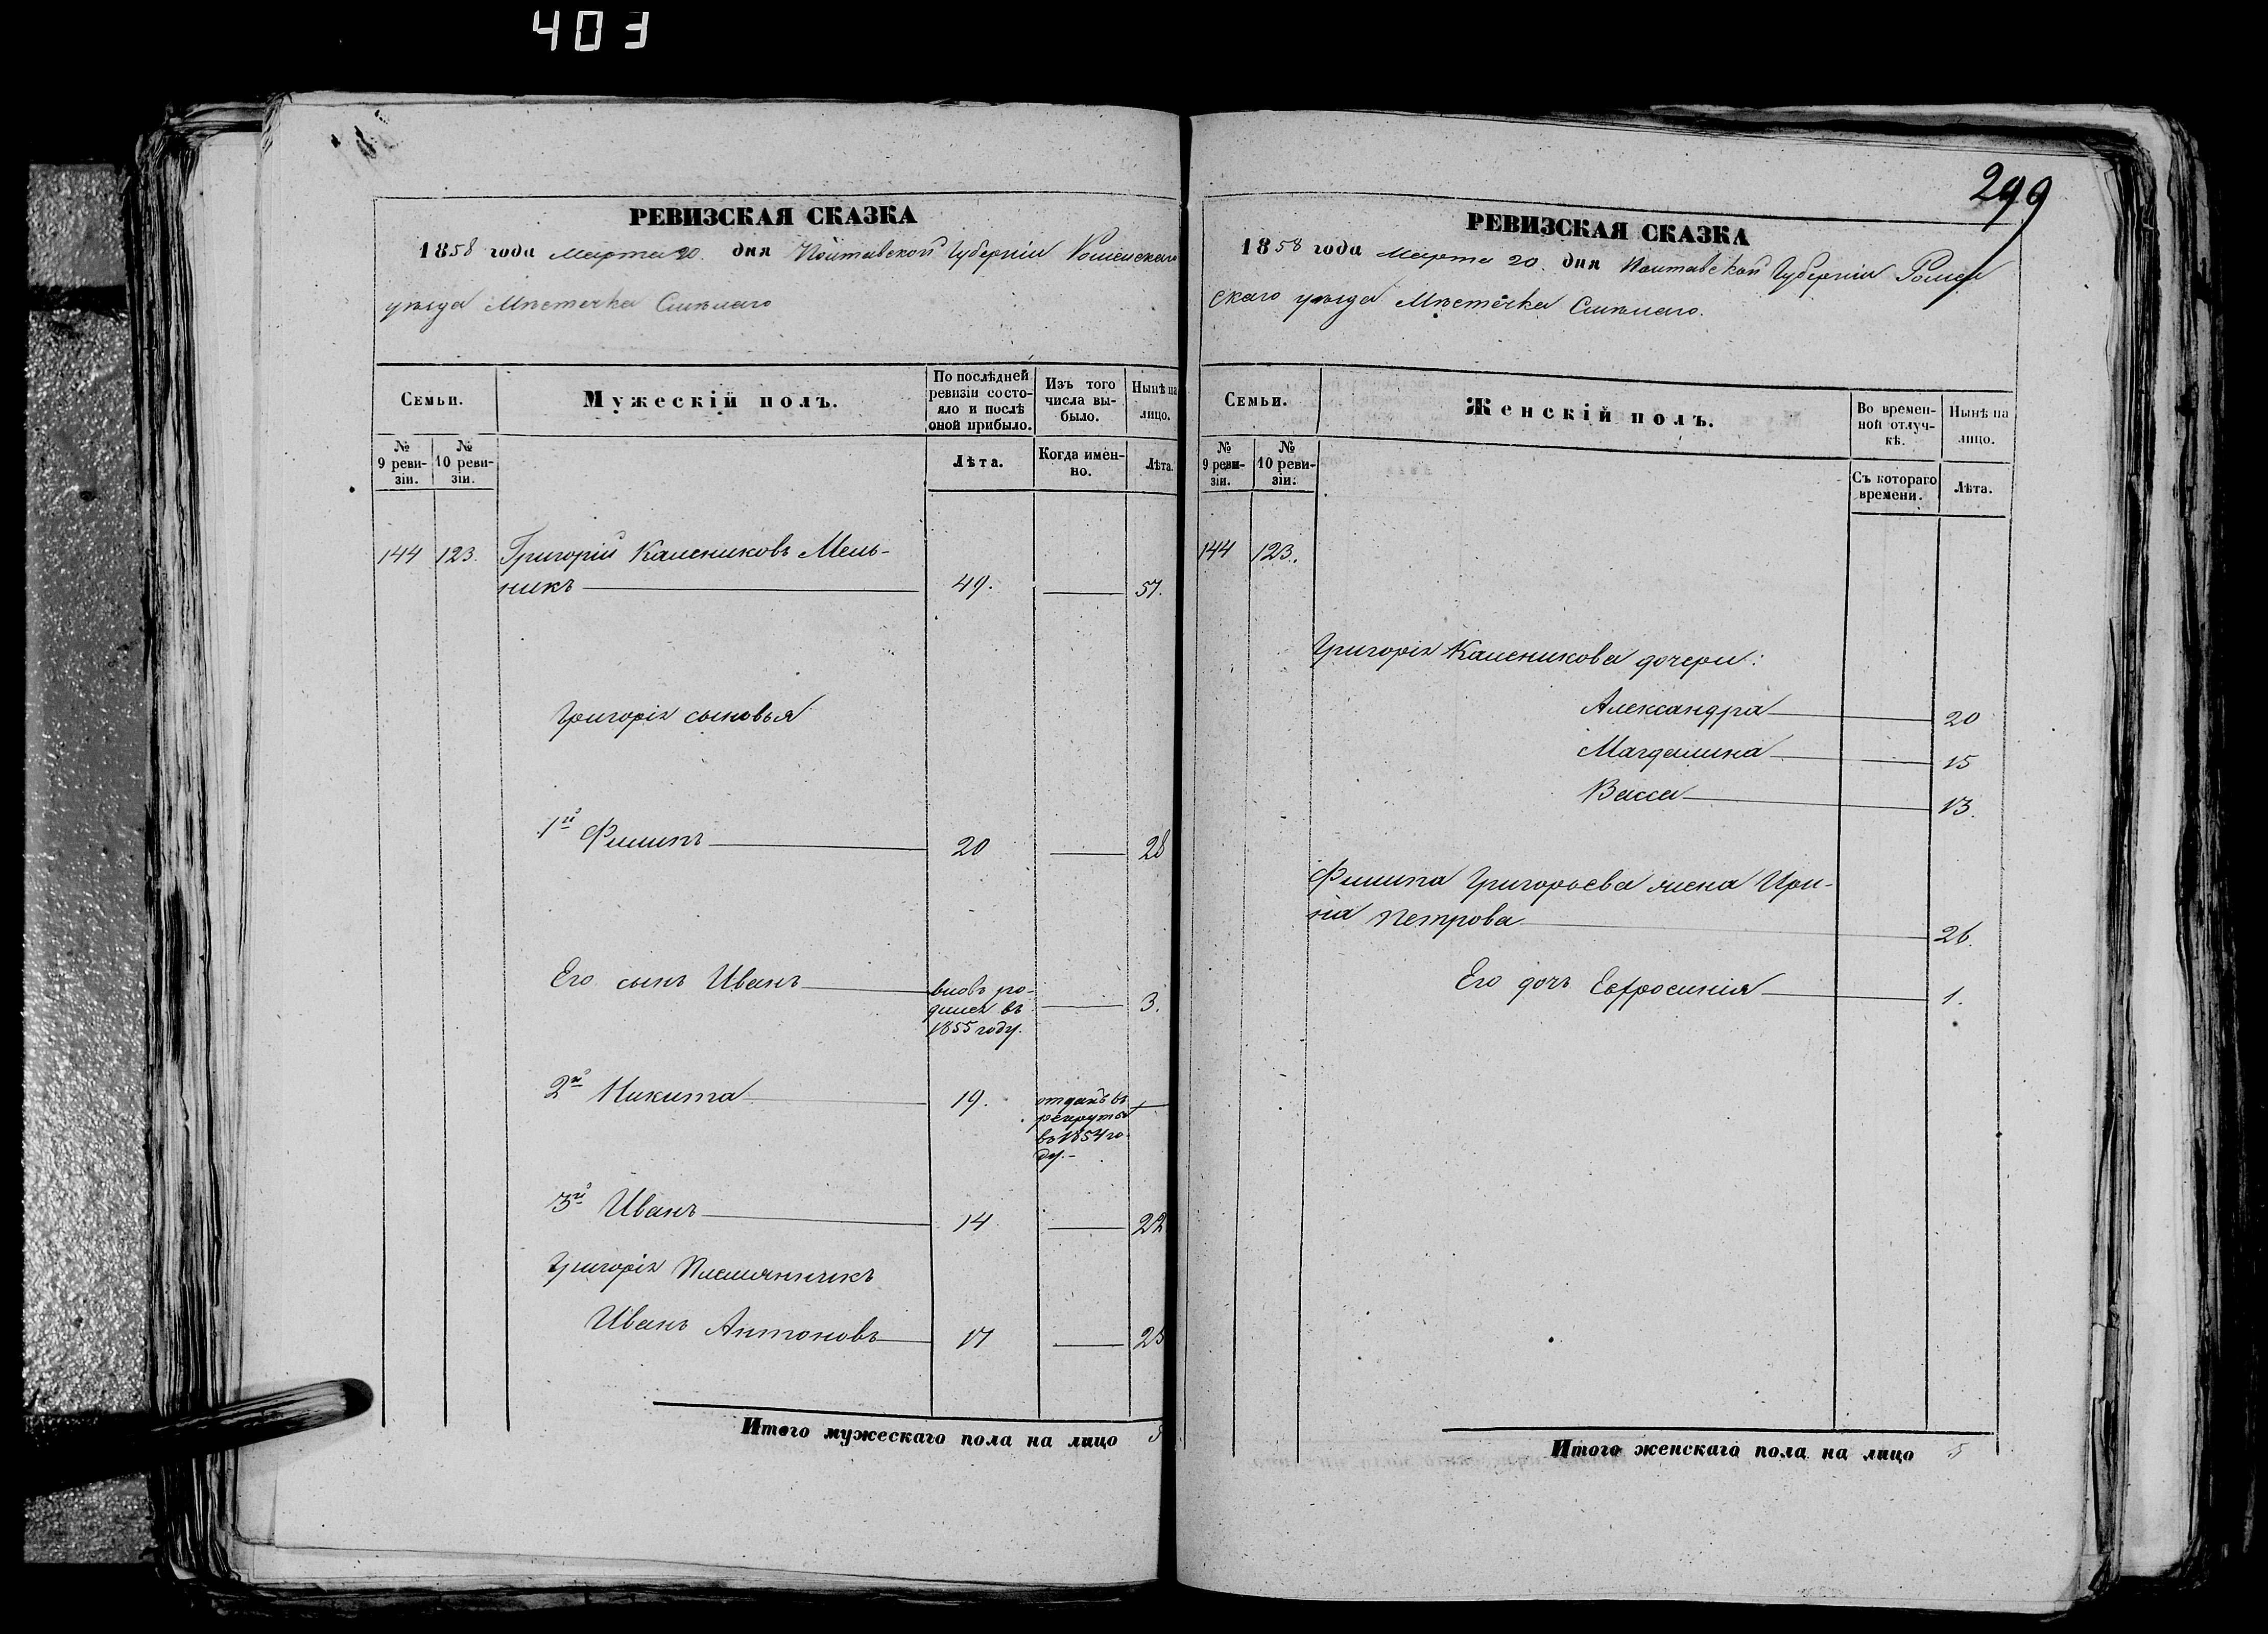 403
299
РЕВИЗСКАЯ СКАЗКА
1858 года Марта 20. дня Полтавской Губерніи Роменскаго
уѣзда Мѣстечка Смѣлаго
Семьи.
Мужескій полъ.
По послѣдней
ревизіи состо-
яло и послѣ
оной прибыло.
Изъ того
числа вы-
было.
Нынѣ на
лицо.
№
9 реви-
зіи.
№
10 реви-
зіи.
Лѣта.
Когда имен-
но.
Лѣта.
144 123. Григорій Калениковъ Мель-
никъ 49. 57.
Григорія сыновья
1й Филипъ 20 28
Его сынъ Иванъ вновь ро- 3.
дился въ
1855 году.
2й Никита 19. отданъ въ
рекруты
въ 1854 го-
ду.-
3й Иванъ 14 22
Григорія Племянникъ
Иванъ Антоновъ 17 25
Итого мужескаго пола на лицо 5
РЕВИЗСКАЯ СКАЗКА
1858 года Марта 20. дня Полтавской Губерніи Ромен
скаго уѣзда Мѣстечка Смѣлаго.
Семьи.
Женскій полъ.
Во времен-
ной отлуч-
кѣ.
Нынѣ на
лицо.
№
9 реви-
зіи.
№
10 реви-
зіи.
Съ котораго
времени.
Лѣта.
144 123.
Григорія Каленикова дочери:
Александра 20
Магдалина 15
Васса 13.
Филипа Григорьева жена Ири-
на Петрова 26.
Его дочь Евфросинія 1.
Итого женскаго пола на лицо 5